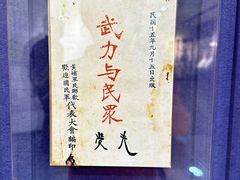 民國十五年九月十五日出版
武力与民眾
黃埔軍民聯歡
歡迎國民軍
代表大會編印